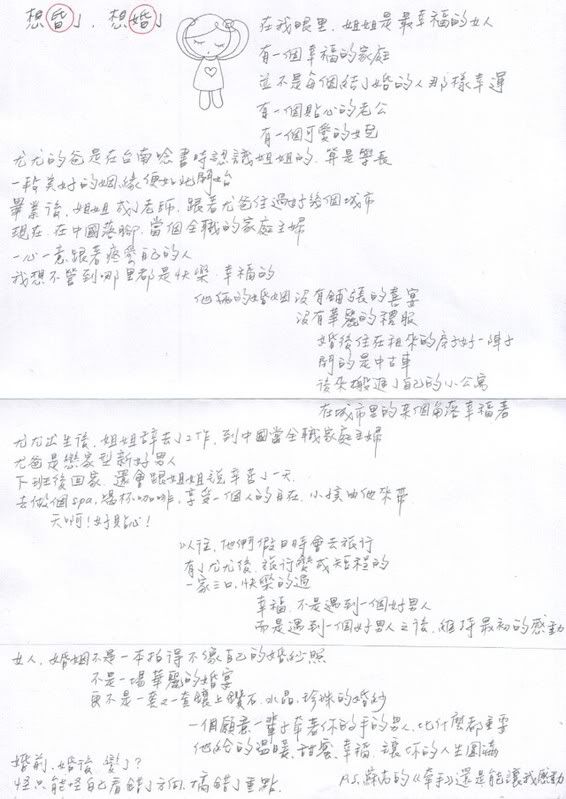 想昏了，想婚了
在我眼里，姐姐是最幸福的女人
有一個幸福的家庭
並不是每個結了婚的人那樣幸運
有一個貼心的老公
有一個可愛的女兒
尤尤的爸是在台南唸書時認識姐姐的．算是學長
一段美好的姻緣便如此開始
畢業後．姐姐或了老師．跟著尤爸住過好幾個城市
現在．在中國落腳．當個全職的家庭主婦
一心一意跟著疼愛自己的人
我想不管到哪里都是快樂．幸福的
他倆的婚姻沒有鋪張的喜宴
沒有華麗的禮服
婚後住在租來的房子好一陣子
開的是中古車
後來搬進了自己的小公寓
在城市里的某個角落幸福著
尤尤出生後，姐姐辭去了工作．到中國當全職家庭主婦
尤爸是戀家型新好男人
下班後回家．還會跟姐姐說辛苦了一天．
去做個spa，喝杯咖啡，享受一個人的自在．小孩由他來帶
天啊！好貼心！
以往，他們假日時會去旅行
有了尤尤後．旅行變成短程的
一家三口．快樂的過
幸福．不是遇到一個好男人
而是遇到一個好男人之後．維持最初的感動
女人．婚姻不是一本拍得不像自己的婚紗照
不是一場華麗的婚宴
更不是一套又一套鑲上鑽石．水晶．珍珠的婚紗
一個願意一輩子牽著你的手的男人．比什麼都重要
他給的溫暖．甜蜜．幸福．讓你的人生圓滿
婚前．婚後 變了？
怪只能怪自己看錯了方向．搞錯了重點．
P.S.蘇芮的《牽手》還是能讓我感動